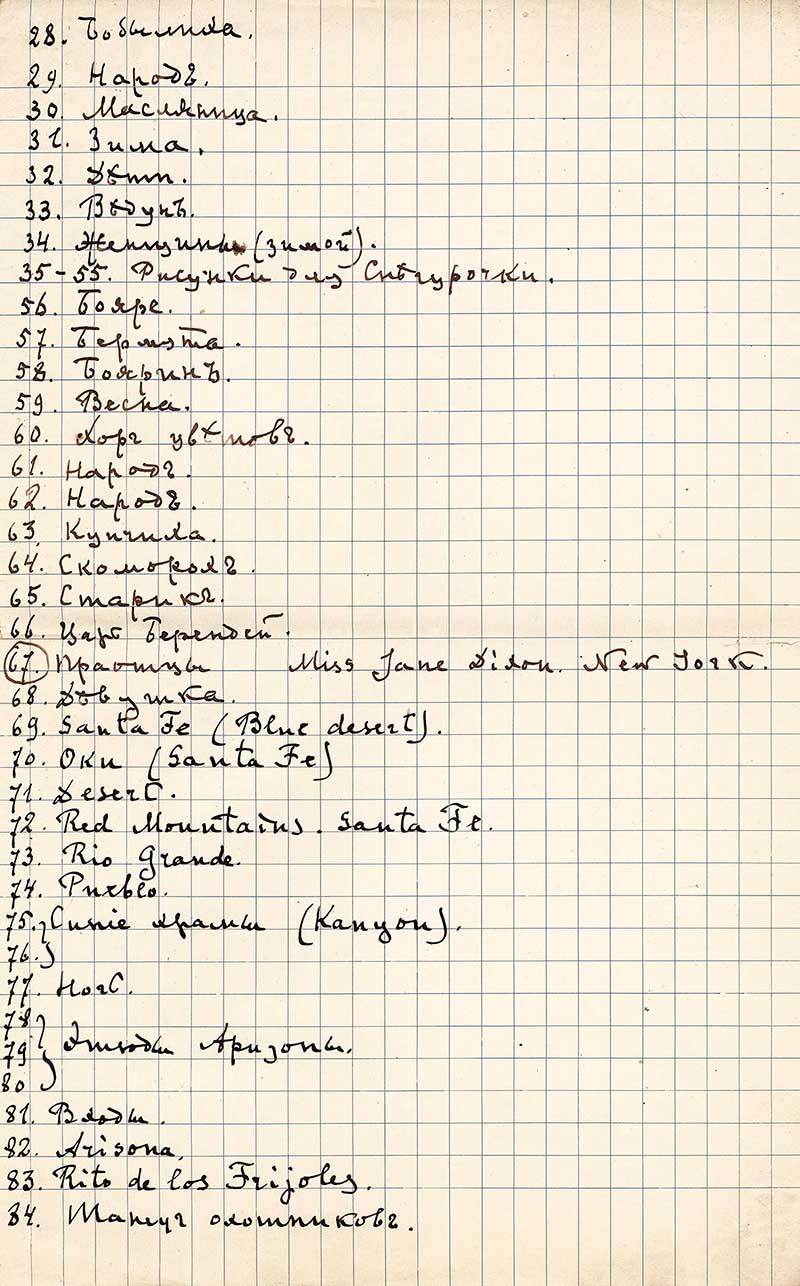 28. Бобылиха.
29. Народъ.
30. Масляница.
31. Зима.
32. Дѣти.
33. Вѣдунъ.
34. Женщины (зимой).
35-55. Рисунки для Снѣгурочки.
56. Бояре.
57. Бермята.
58. Бояринъ.
59. Весна.
60. Хоръ цвѣтовъ.
61. Народъ.
62. Народъ.
63. Купчиха.
64. Скоморохъ.
65. Старикъ.
66. Царь Берендей.
67. Праотцы Miss Jane Dixon. New York.
68. Дѣвушка.
69. Santa Fe (Blue desert).
70. Оки (Santa Fe)
71. Desert.
72. Red Mountains. Santa Fe.
73. Rio Grande.
74. Pueblo.
75. Синіе храмы (Kanyon).
76.
77. Ночь.
78
79 Этюды Аризоны.
80
81. Входы.
82. Arisona.
83. Rito de los Frijoles.
84. Танецъ охотниковъ.